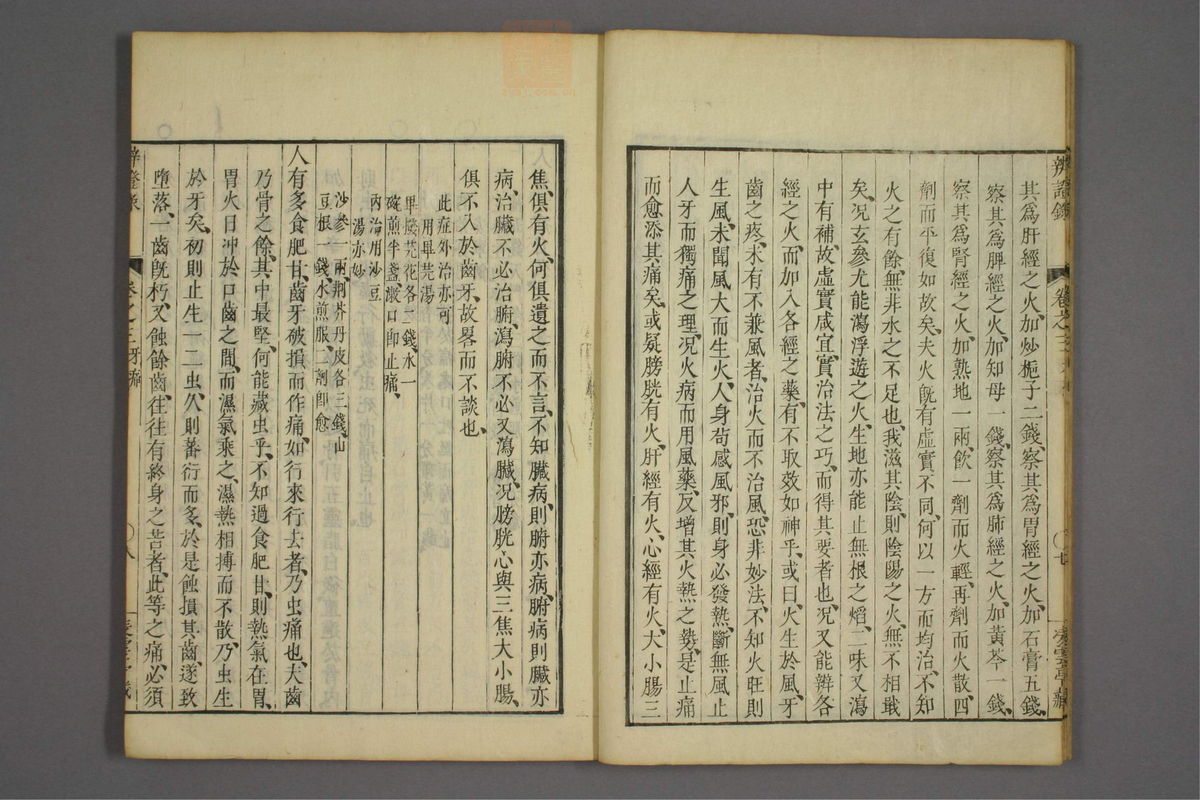 其爲肝經之火、加炒梔子二錢、察其爲胃經之火、加石膏五錢、
察其爲脾經之火、加知母一錢、察其爲肺經之火、加黃芩一錢、
察其爲腎經之火、加熟地一兩、飲一劑而火輕、再劑而火散、四
劑而平復如故矣、夫火旣有虛實不同、何以一方而均治、不知
火之有餘、無非水之不足也、我滋其陰、則陰陽之火、無不相戢
矣、况玄參尤能瀉浮遊之火、生地亦能止無根之熖、二味又瀉
中有補、故虛實咸宜、實治法之巧、而得其要者也、况又能辨各
經之火、而加入各經之藥、有不取效如神乎、或曰、火生於風、牙
齒之疼、未有不兼風者、治火而不治風、恐非妙法、不知火旺則
生風、未聞風大而生火、人身苟感風邪、則身必發熱、斷無風止
人牙而獨痛之理、况火病而用風藥、反增其火熱之勢、是止痛
而愈添其痛矣、或疑膀胱有火、肝經有火、心經有火、大小腸三
辨證錄
卷之三
七
焦、俱有火、何俱遺之而不言、不知臟病、則腑亦病、腑病則臟亦
病、治臟不必治腑、瀉腑不必又瀉臟、况膀胱心與三焦大小腸、
俱不入於齒牙、故畧而不談也、
此症外治亦可
用畢芫湯
畢撥芫花各二錢、水一
碗煎半盞、漱口即止痛、
內治用沙豆
湯亦妙
沙參一兩、荆芥丹皮各三錢、山
豆根一錢、水煎服、二劑卽愈
人有多食肥甘、齒牙破損而作痛、如行來行去者、乃虫痛也、夫齒
乃骨之餘、其中最堅、何能藏虫乎、不知過食肥甘、則熱氣在胃、
胃火日冲於口齒之間、而濕氣乘之、濕熱相搏而不散、乃虫生
於牙矣、初則止生一二虫、久則蕃衍而多、於是蝕損其齒、遂致
墮落、一齒旣朽、又蝕餘齒、往往有終身之苦者、此等之痛、必須
辨證錄
卷之三牙痛
八